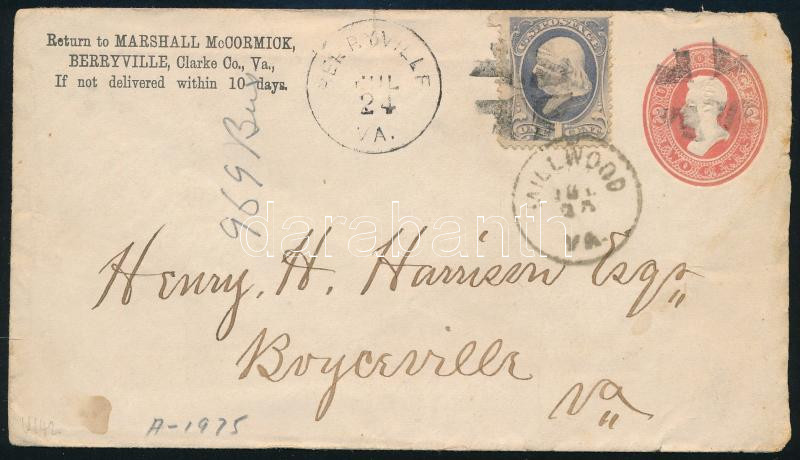 Return to MARSHALL McCORMICK,
BERRYVILLE, Clarke Co., Va.,
If not delivered within 10 days.
BERRYVILLE
JUL
24
VA.
U.S. POSTAGE
MILLWOOD
JUL
25
VA.
darabanth
Henry. H. Harrison Esqr
Boyceville
Va
A-1975